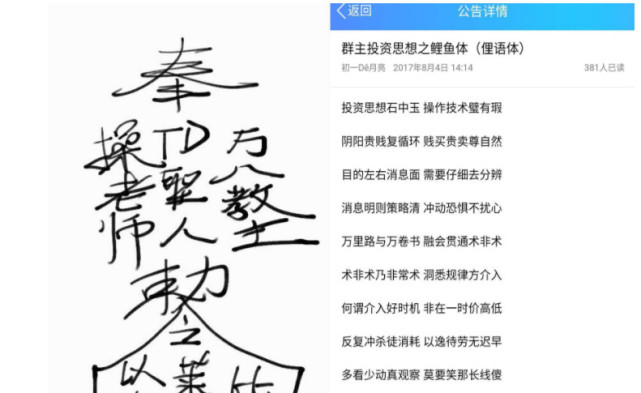 奉
万八教主
TD聖人
操老师
勅令
莱
返回
公告详情
群主投资思想之鲤鱼体（俚语体）
初一Dê月亮 2017年8月4日 14:14 381人已读
投资思想石中玉 操作技术璧有瑕
阴阳贵贱复循环 贱买贵卖尊自然
目的左右消息面 需要仔细去分辨
消息明则策略清 冲动恐惧不扰心
万里路与万卷书 融会贯通术非术
术非术乃非常术 洞悉规律方介入
何谓介入好时机 非在一时价高低
反复冲杀徒消耗 以逸待劳无迟早
多看少动真观察 莫要笑那长线傻